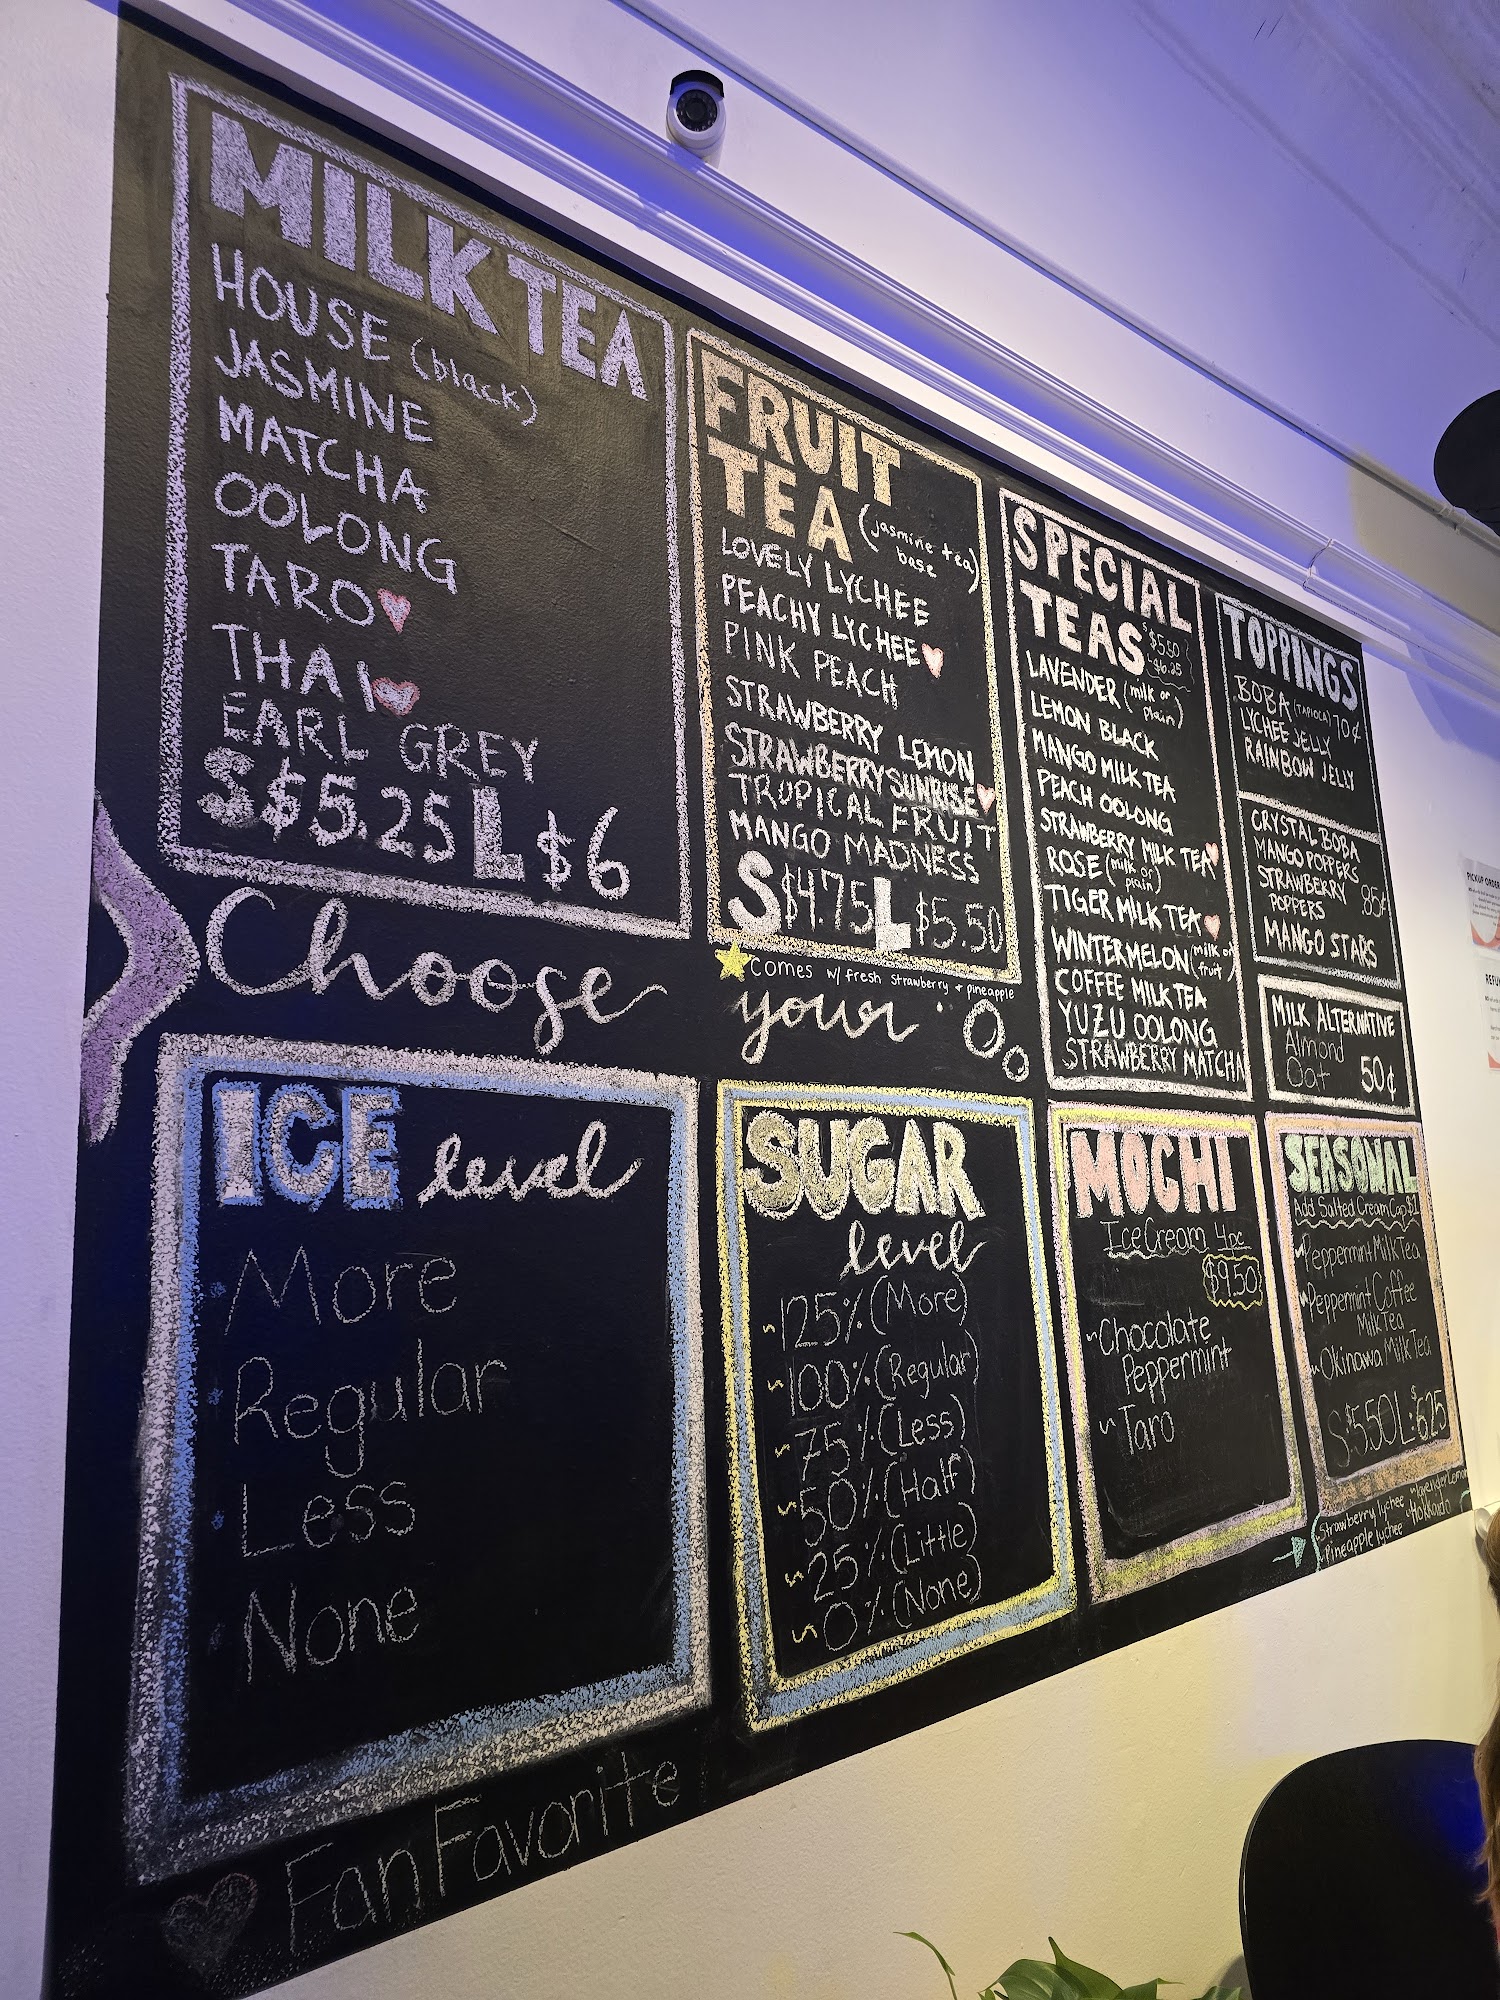 MILK TEA
HOUSE (black)
JASMINE
MATCHA
OOLONG
TARO
THAI
EARL GREY
S $5.25 L $6
FRUIT
TEA (jasmine tea
base)
LOVELY LYCHEE
PEACHY LYCHEE
PINK PEACH
STRAWBERRY LEMON
STRAWBERRY SUNRISE
TROPICAL FRUIT
MANGO MADNESS
S $4.75 L $5.50
comes w/ fresh strawberry + pineapple
SPECIAL
TEAS $5.50
-$6.25
LAVENDER (milk or
plain)
LEMON BLACK
MANGO MILK TEA
PEACH OOLONG
STRAWBERRY MILK TEA
ROSE (milk or
plain)
TIGER MILK TEA
WINTERMELON (milk or
fruit)
COFFEE MILK TEA
YUZU OOLONG
STRAWBERRY MATCHA
TOPPINGS
BOBA (TAPIOCA) 70¢
LYCHEE JELLY
RAINBOW JELLY
CRYSTAL BOBA
MANGO POPPERS
STRAWBERRY 85¢
POPPERS
MANGO STARS
MILK ALTERNATIVE
Almond
Oat 50¢
Choose your
ICE level
More
Regular
Less
None
SUGAR
level
~125% (More)
~100% (Regular)
~75% (Less)
~50% (Half)
~25% (Little)
~0% (None)
MOCHI
Ice Cream 4pc
$9.50
~Chocolate
Peppermint
~Taro
SEASONAL
Add Salted Cream Cap $1
~Peppermint Milk Tea
~Peppermint Coffee
Milk Tea
~Okinawa Milk Tea
S:$5.50 L:$6.25
Strawberry lychee ~lavender Lemon
Pineapple lychee ~Hokkaido
Fan Favorite
PICKUP ORDER